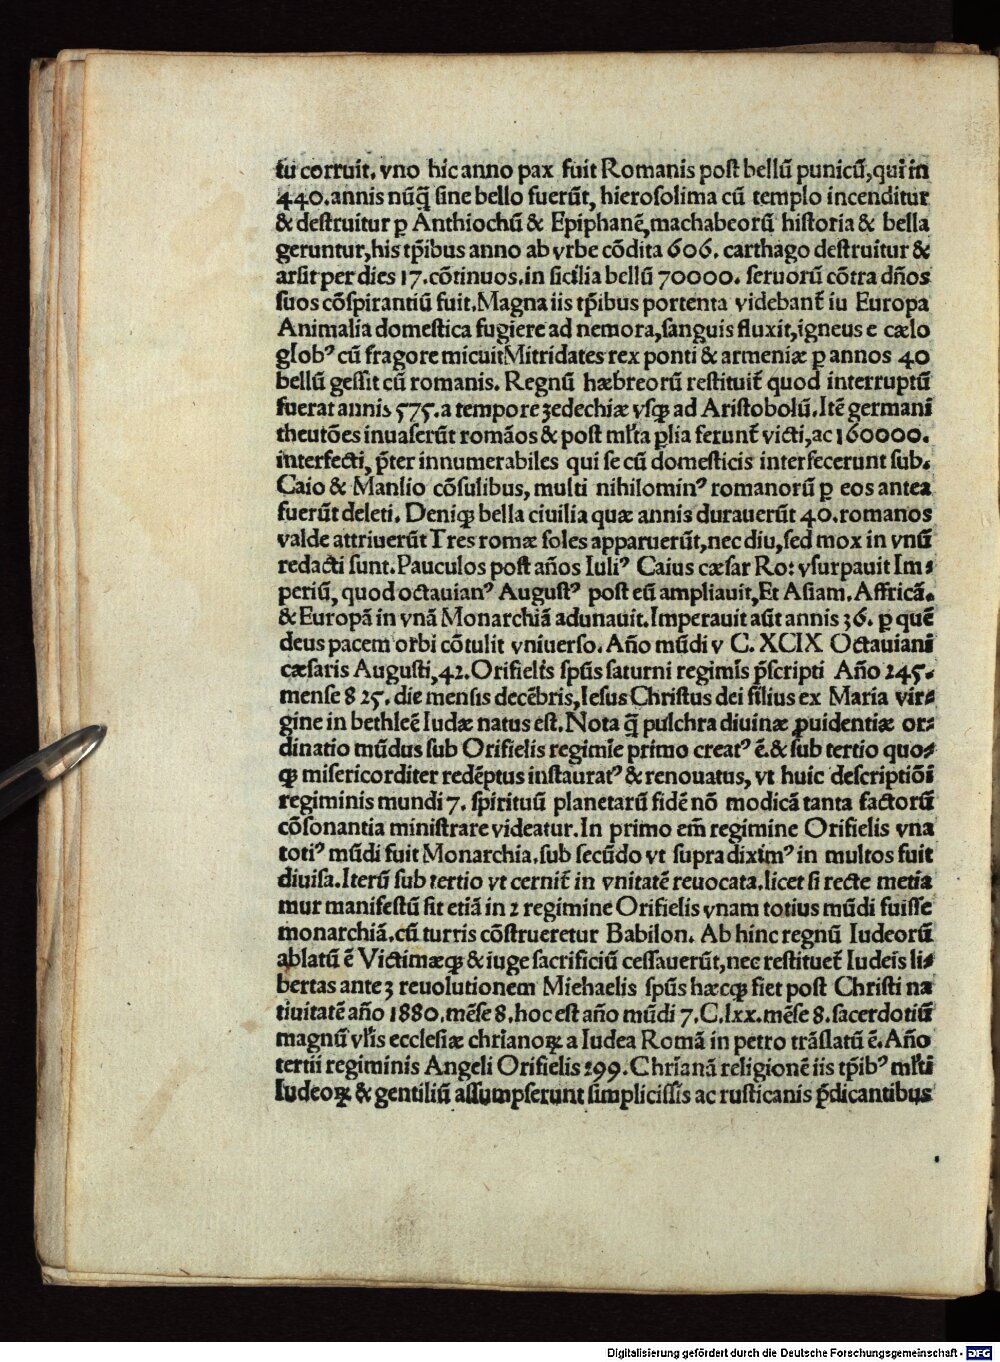 tu corruit. vno hic anno pax fuit Romanis post bellū punicū, qui in
440. annis nūq̄ sine bello fuerūt, hierosolima cū templo incenditur
& destruitur ꝑ Anthiochū & Epiphanē, machabeorū historia & bella
geruntur, his tp̄ibus anno ab vrbe cōdita 606. carthago destruitur &
arsit per dies 17. cōtinuos. in sicilia bellū 70000. seruorū cōtra dn̄os
suos cōspirantiū fuit. Magna iis tp̄ibus portenta videbant᷑ iu Europa
Animalia domestica fugiere ad nemora, sanguis fluxit, igneus e cælo
globꝰ cū fragore micuit Mitridates rex ponti & armeniæ ꝑ annos 40
bellū gessit cū romanis. Regnū hæbreorū restituit᷑ quod interruptū
fuerat annis 575. a tempore zedechiæ vsqꝫ ad Aristobolū. Itē germani
theutōes inuaserūt romāos & post ml'ta p̱lia ferunt᷑ victi, ac 160000.
interfecti, p̄ter innumerabiles qui se cū domesticis interfecerunt sub.
Caio & Manlio cōsulibus, multi nihilominꝰ romanorū ꝑ eos antea
fuerūt deleti. Deniqꝫ bella ciuilia quæ annis durauerūt 40. romanos
valde attriuerūt Tres romæ soles apparuerūt, nec diu, sed mox in vnū
redacti sunt. Pauculos post an̄os Iuliꝰ Caius cæsar Ro: vsurpauit Im⸗
periū, quod octauianꝰ Augustꝰ post eū ampliauit, Et Asiam. Affricā.
& Europā in vnā Monarchiā adunauit. Imperauit aūt annis 36. ꝑ quē
deus pacem orbi cōtulit vniuerso. An̄o mūdi v C. XCIX Octauiani
cæsaris Augusti, 42. Orifielis sp̄us saturni regimīs p̄scripti An̄o 245.
mense 8 25. die mensis decēbris, Iesus Christus dei filius ex Maria vir⸗
gine in bethleē Iudæ natus est. Nota q̄ pulchra diuinæ ꝓuidentiæ or⸗
dinatio mūdus sub Orifielis regimīe primo creatꝰ ē. & sub tertio quo⸗
qꝫ misericorditer redēptus instauratꝰ & renouatus, vt huic descriptiōi
regiminis mundi 7. spirituū planetarū fidē nō modicā tanta factorū
cōsonantia ministrare videatur. In primo em̄ regimine Orifielis vna
totiꝰ mūdi fuit Monarchia. sub secūdo vt supra diximꝰ in multos fuit
diuisa. Iterū sub tertio vt cernit᷑ in vnitatē reuocata. licet si recte metia
mur manifestū sit etiā in 2 regimine Orifielis vnam totius mūdi fuisse
monarchiā. cū turris cōstrueretur Babilon. Ab hinc regnū Iudeorū
ablatū ē Victimæqꝫ & iuge sacrificiū cessauerūt, nec restituet᷑ Iudeis li⸗
bertas ante 3 reuolutionem Miehaelis sp̄us hæcqꝫ fiet post Christi na
tiuitatē an̄o 1880. mēse 8. hoc est an̄o mūdi 7. C. lxx. mēse 8. sacerdotiū
magnū vl'is ecclesiæ chr̄ianoꝝ a Iudea Romā in petro trāslatū ē. An̄o
tertii regiminis Angeli Orifielis 299. Chr̄ianā religionē iis tp̄ibꝰ ml'ti
Iudeoꝝ & gentiliū assumpserunt simplicissīs ac rusticanis p̄dicantibus
Digitalisierung gefördert durch die Deutsche Forschungsgemeinschaft - DFG